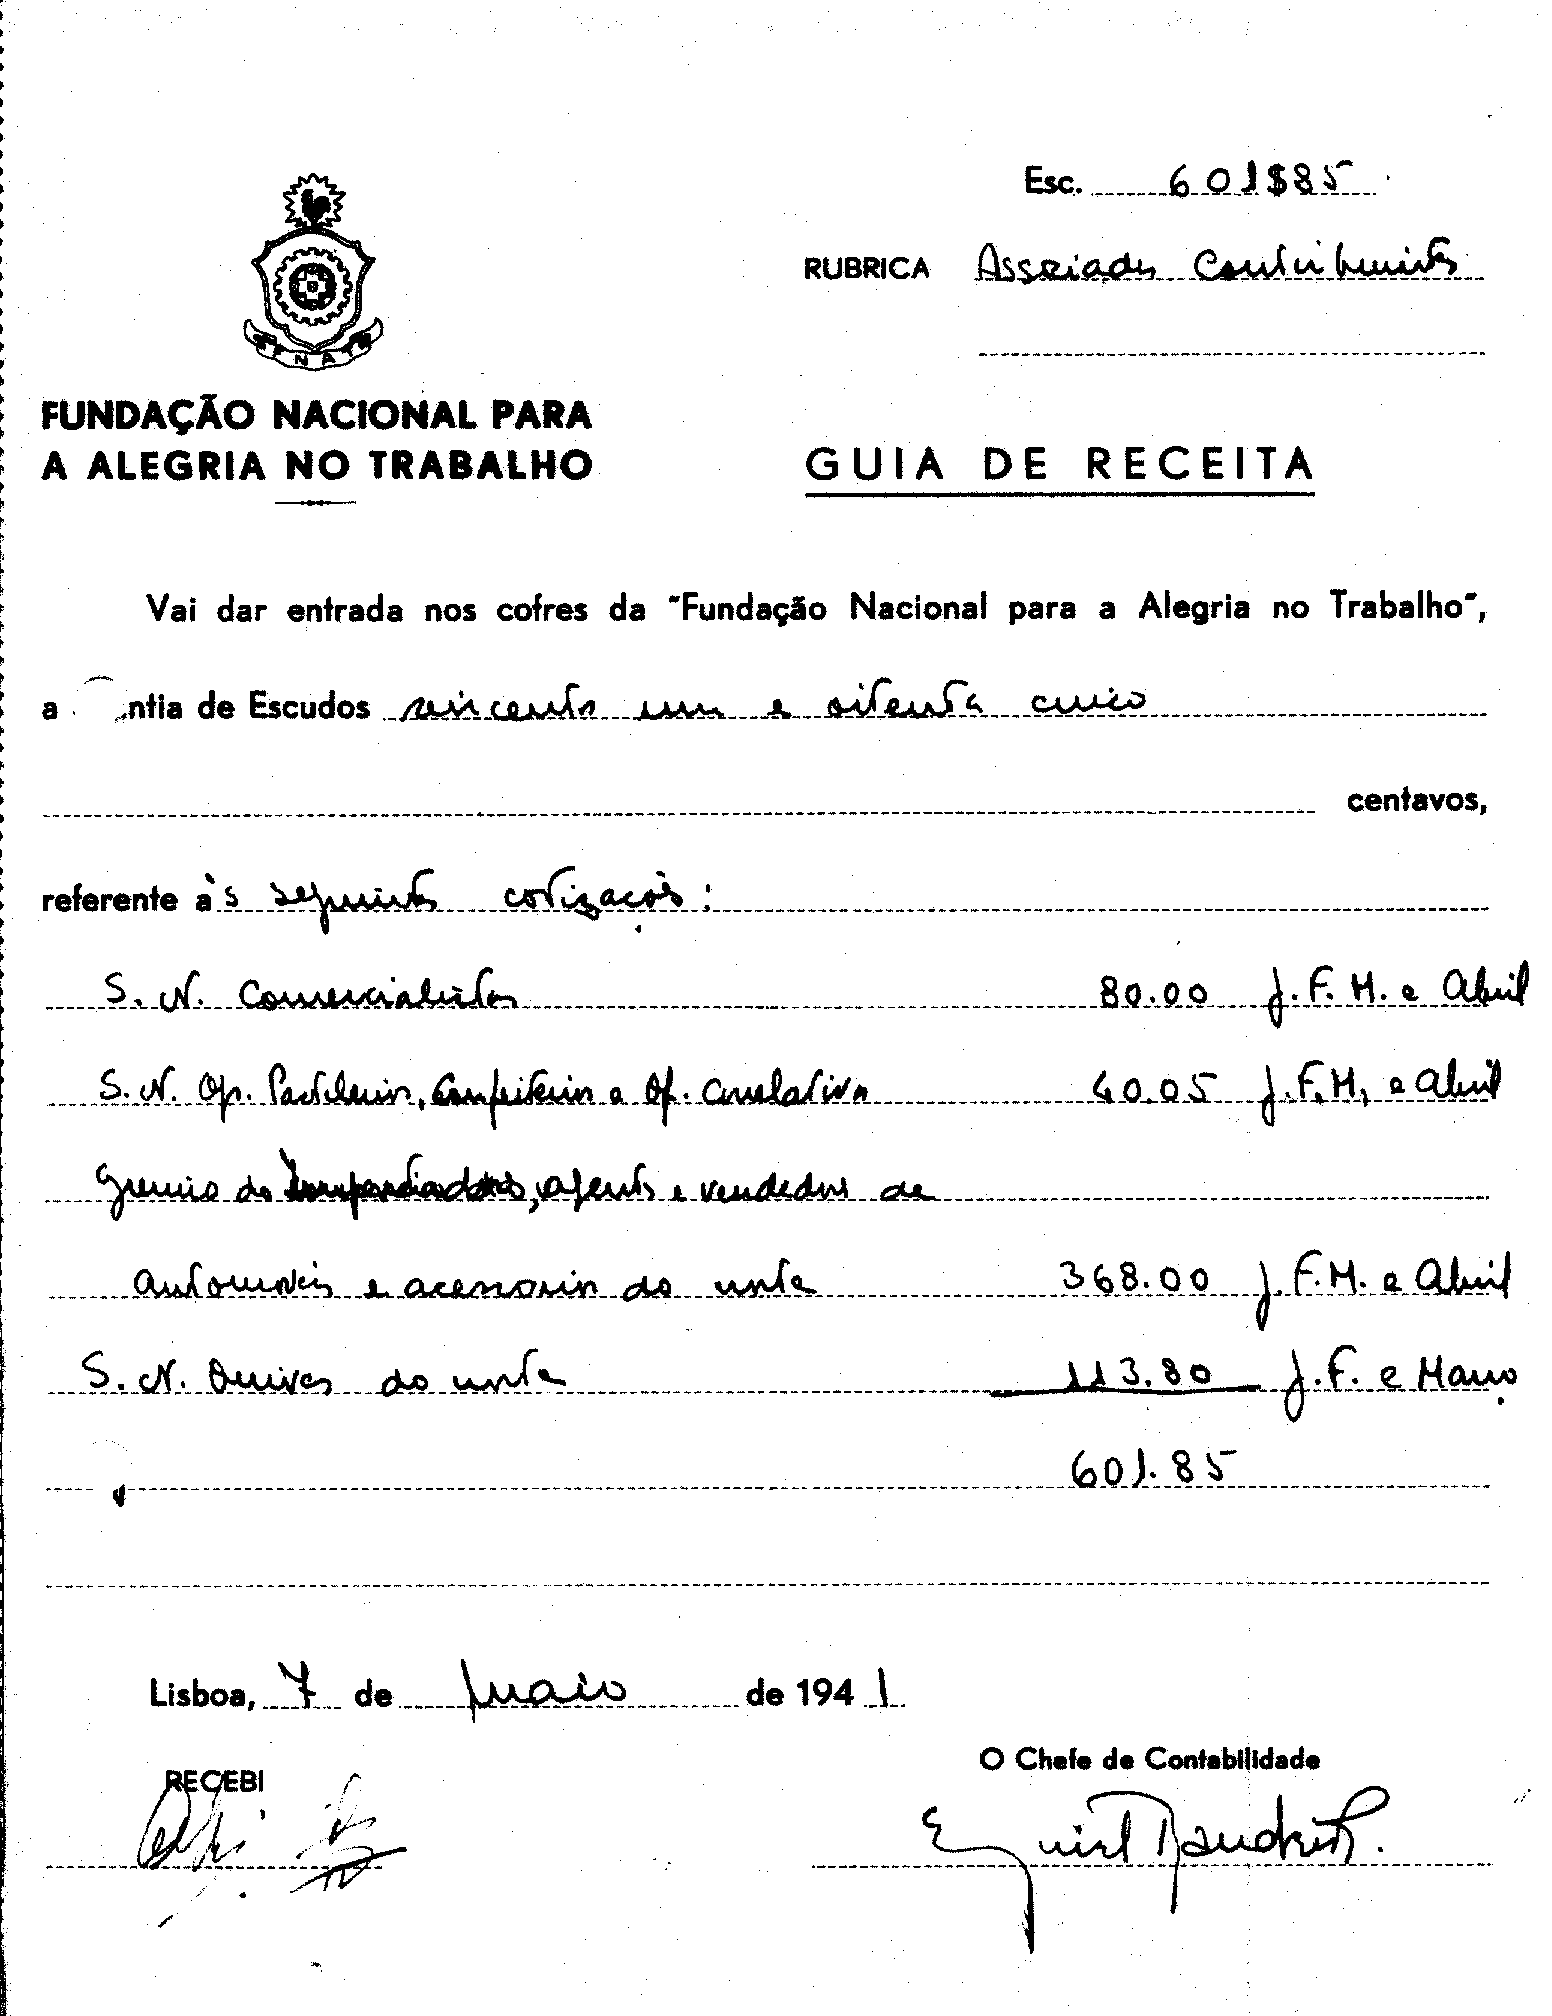 Esc. 601$85
RUBRICA Associados Contribuintes
FNAT
FUNDAÇÃO NACIONAL PARA
A ALEGRIA NO TRABALHO
GUIA DE RECEITA
Vai dar entrada nos cofres da "Fundação Nacional para a Alegria no Trabalho",
a ntia de Escudos seiscentos um e oitenta cinco
centavos,
referente às seguintes cotizações:
S. N. Comercialistas 80.00 J. F. M. e Abril
S. N. Op. Pasteleiros, Confeiteiros e Of. Correlativos 40.05 J. F. M. e Abril
Gremio do Importadores, agentes e vendedores de
automoveis e acessorios do norte 368.00 J. F. M. e Abril
S. N. Ourives do norte 113.80 J. F. e Março
601.85
Lisboa, 7 de Maio de 1941
O Chefe de Contabilidade
RECEBI